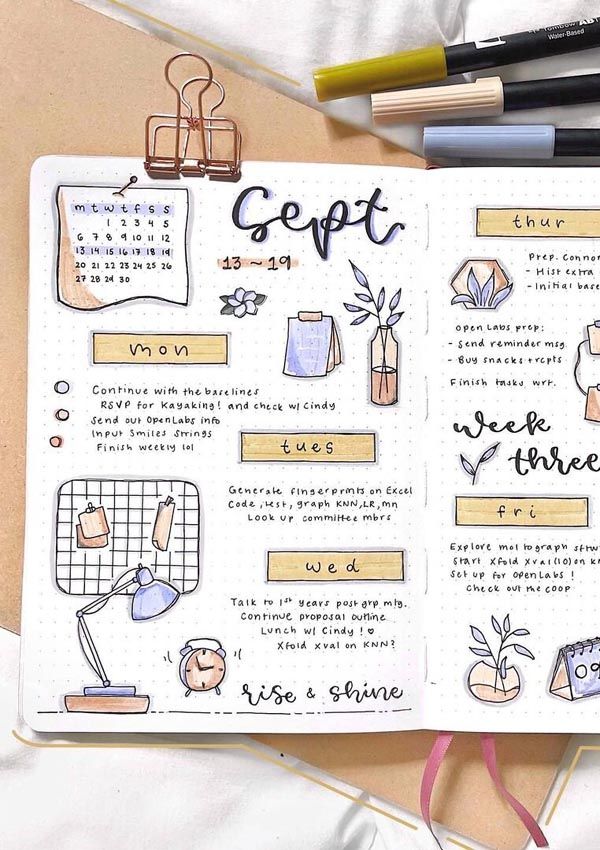 Tombow AB
Water-Based
Sept
13 ~ 19
m t w t f s s
1 2 3 4 5
6 7 8 9 10 11 12
13 14 15 16 17 18 19
20 21 22 23 24 25 26
27 28 29 30
mon
Continue with the baselines
RSVP for Kayaking! and check w/ Cindy
Send out OpenLabs info
Input Smiles Strings
Finish weekly lol
tues
Generate fingerprints on Excel
Code, test, graph KNN, LR, mn
Look up committee mbrs
wed
Talk to 1st years post grp mtg.
Continue proposal outline
Lunch w/ Cindy! ♡
Xfold xval on KNN?
rise & shine
thur
Prep. Connor
- Hist extra
- Initial base
Open Labs prep:
- Send reminder msg
- Buy snacks + rcpts
Finish tasks wrt.
week
three
fri
Explore moltograph sftw
Start Xfold Xval (10) on K
Set up for OpenLabs!
Check out the COOP
09